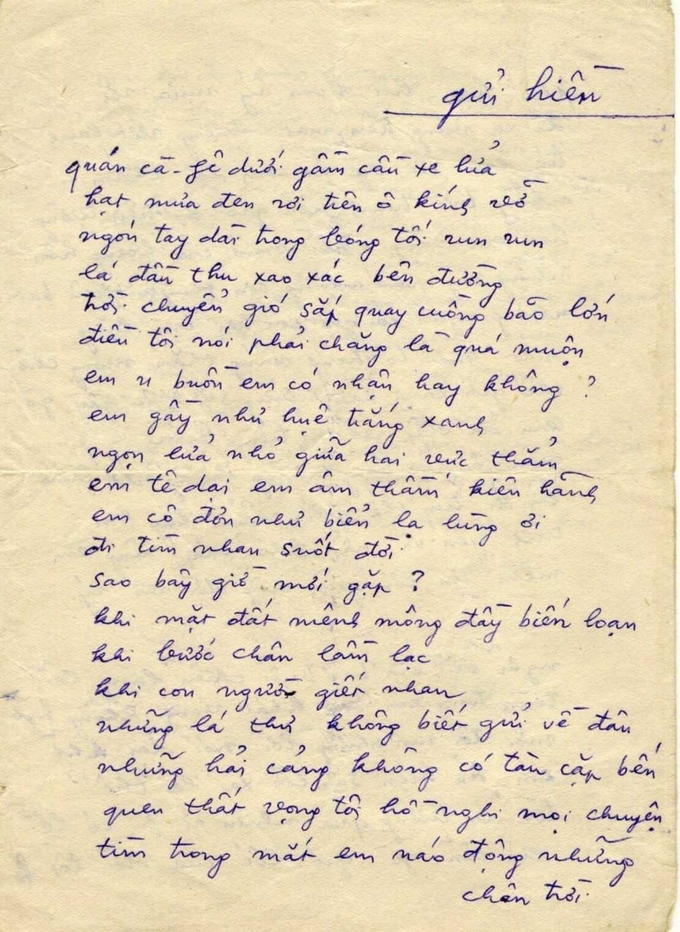 gửi hiền
quán cà-fê dưới gầm cầu xe lửa
hạt mưa đen rơi trên ô kính vỡ
ngón tay dài trong bóng tối run run
lá đầu thu xao xác bên đường
trời chuyển gió sắp quay cuồng bão lớn
điều tôi nói phải chăng là quá muộn
em u buồn em có nhận hay không ?
em gầy như huệ trắng xanh
ngọn lửa nhỏ giữa hai vực thẳm
em tê dại em âm thầm kiên hãnh
em cô đơn như biển lạ lùng ơi
đi tìm nhau suốt đời
sao bây giờ mới gặp ?
khi mặt đất mênh mông đầy biến loạn
khi bước chân lầm lạc
khi con người giết nhau
những lá thư không biết gửi về đâu
những hải cảng không có tàu cặp bến
quen thất vọng tôi hồ nghi mọi chuyện
tìm trong mắt em náo động những
chân trời